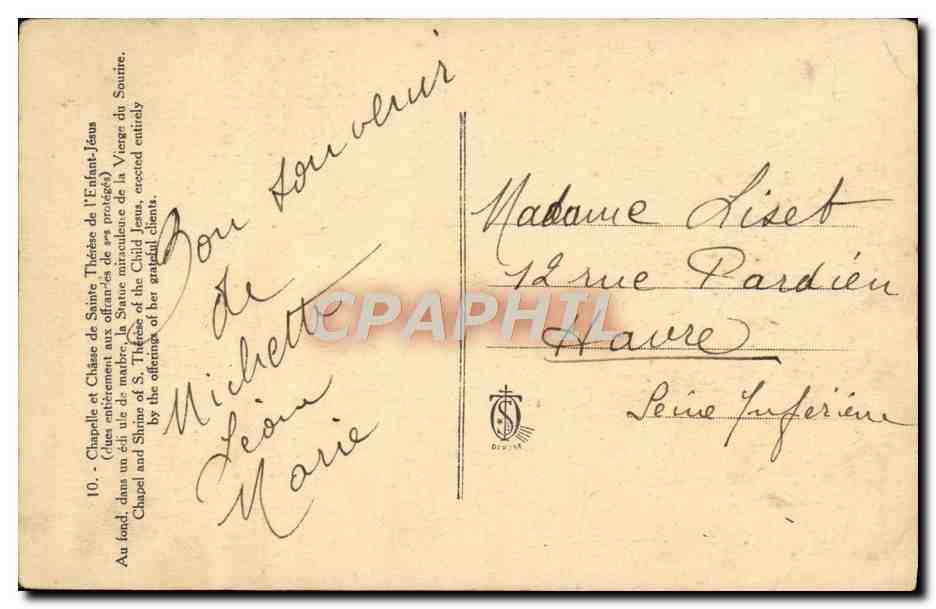 10. - Chapelle et Châsse de Sainte Thérèse de l'Enfant-Jésus
(dues entièrement aux offrandes de ses protégés)
Au fond, dans un édi ule de marbre, la Statue miraculeuse de la Vierge du Sourire.
Chapel and Shrine of S. Thérèse of the Child Jesus, erected entirely
by the offerings of her grateful clients.
Bon souvenir
de
Michette
Léone
Marie
CPAPHIL
Madame Liset
12 rue Pardieu
Havre
Seine Inférieure